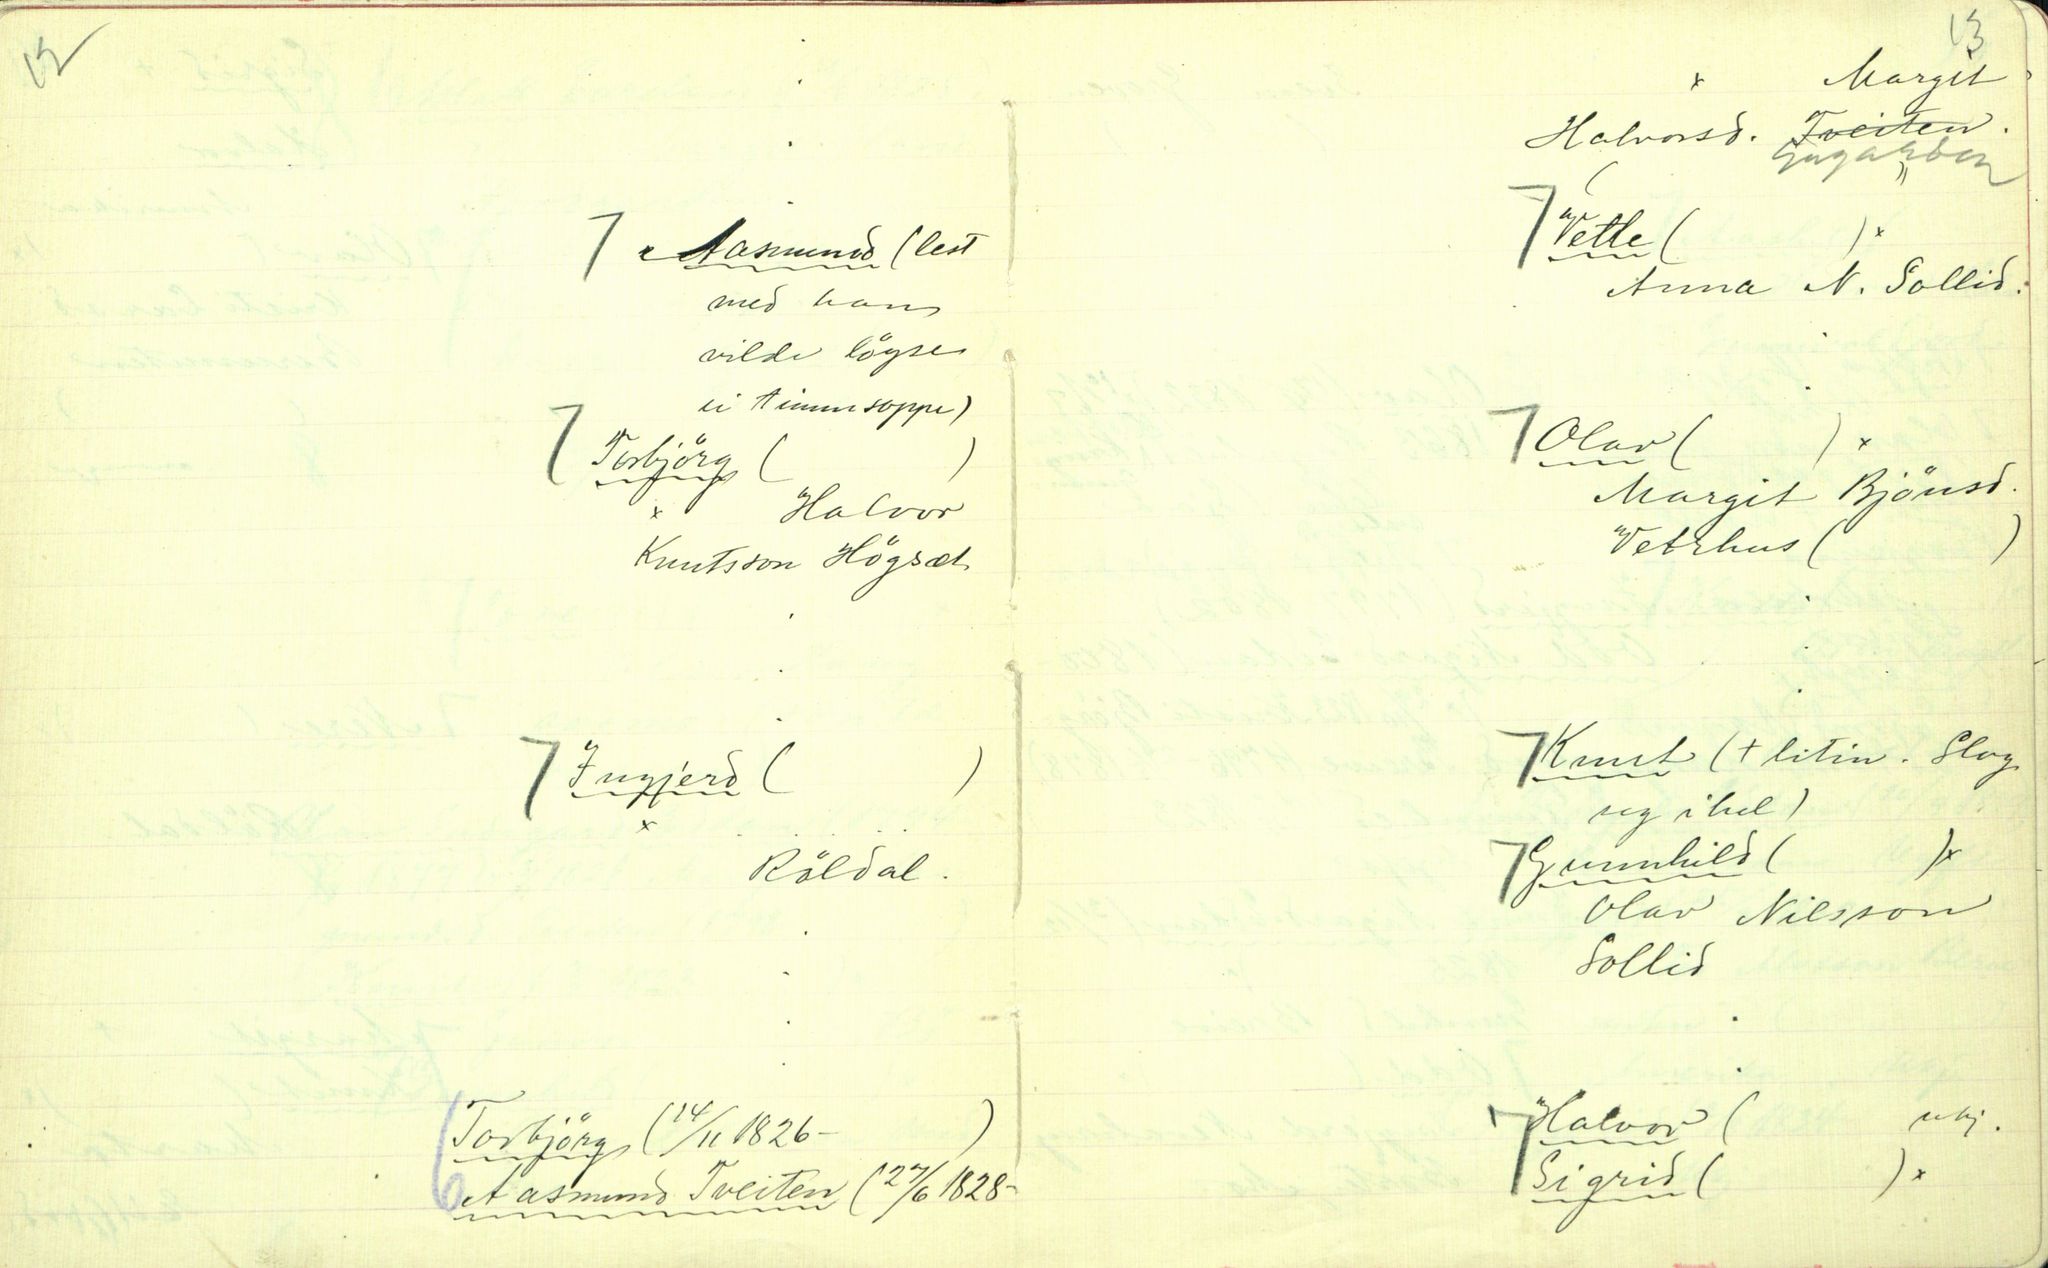 12
7 Aasmund (lest
med han
vilde löyse
ei timmsoppe)
7 Torbjörg ( )
x Halvor
Knutsson Högsæt
7 Ingjerd ( )
x . . . . .
Röldal.
6 Torbjörg (14/11 1826- )
Aasmund Tveiten (27/6 1828-
13
x Margit
Halvorsd. Tveiten.
(
7 Vetle ( ) x
Anna N. Sollid.
7 Olav ( ) x
Margit Bjönsd.
Vetrhus ( )
7 Knut († litin. Slog
seg ihel)
7 Gunnhild ( ) x
Olav Nilsson
Sollid
7 Halvor ( ukj.
Sigrid ( ) x